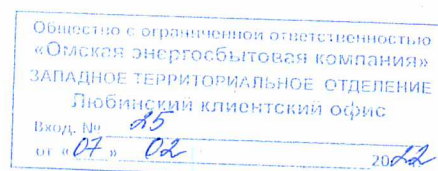 Общество с ограниченной ответственностью
«Омская энергосбытовая компания»
ЗАПАДНОЕ ТЕРРИТОРИАЛЬНОЕ ОТДЕЛЕНИЕ
Любинский клиентский офис
Вход. № 25
от «07» 02 2022